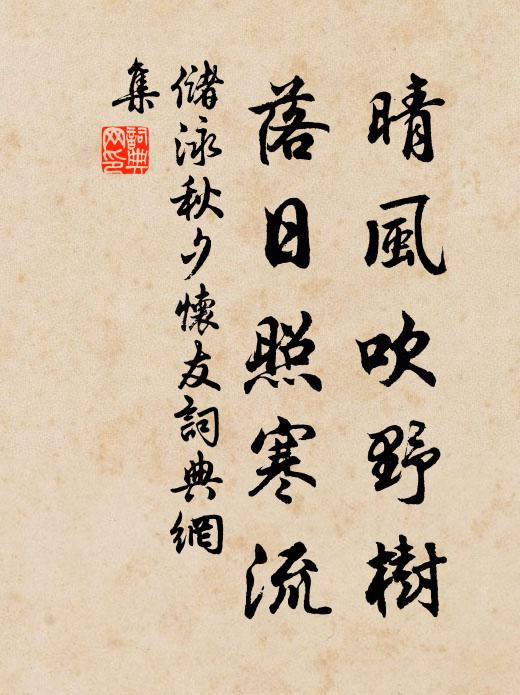 晴風吹野樹
落日照寒流
儲泳秋夕懷友詞典網
集
詞典網印